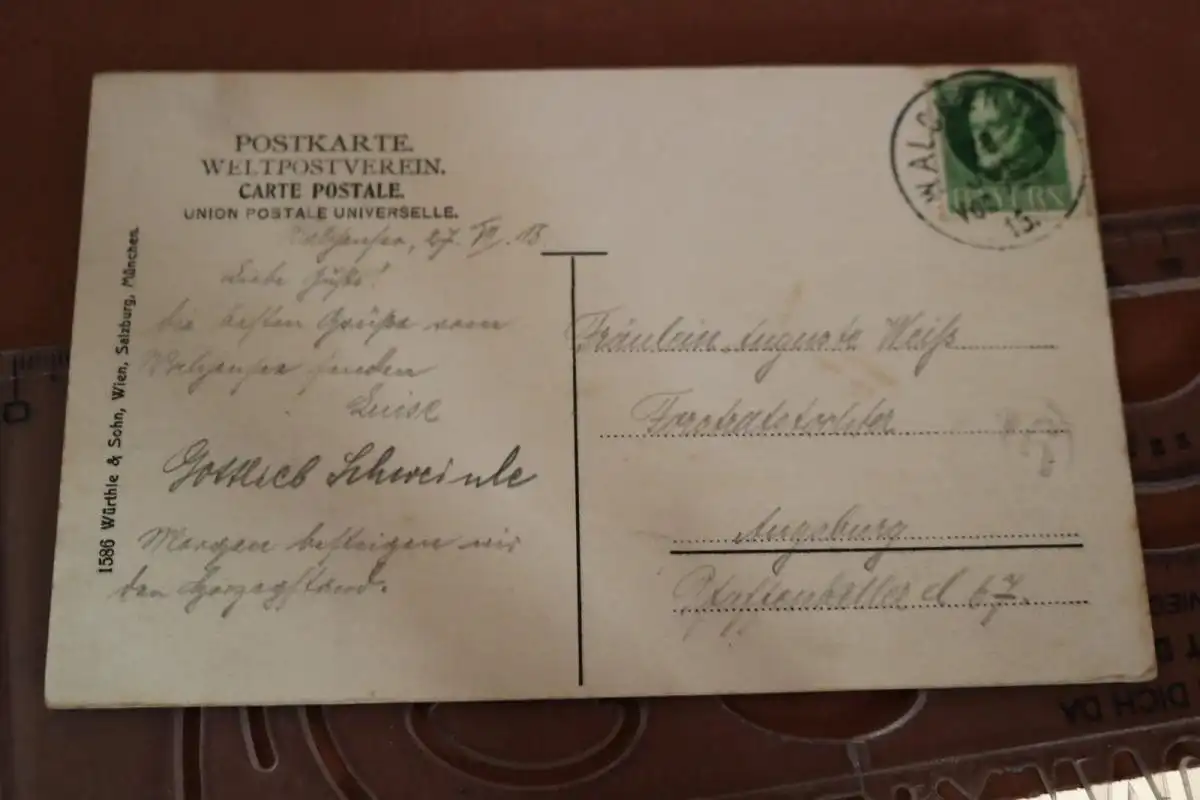 POSTKARTE.
WELTPOSTVEREIN.
CARTE POSTALE.
UNION POSTALE UNIVERSELLE.
Walchensee, 27. VI. 15
Liebe
die besten Grüße vom
Walchensee senden
Luise
Gottlieb Schweinle
Morgen besteigen wir
den Herzogstand.
1586 Würthle & Sohn, Wien, Salzburg, München.
WALC
15.
BAYERN
Fräulein Auguste Weiß
Forstratstochter
Augsburg
Pfaffenkeller d 67.
DICH DA